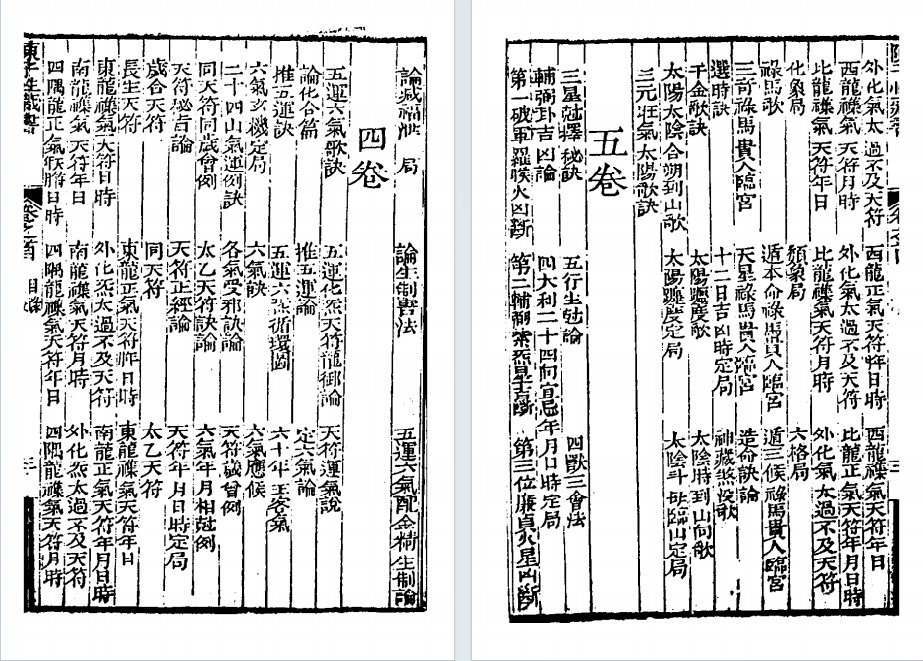 論生制害法 五運六氣配金精生制論
四卷
五運六氣歌訣 五運化炁天符龍御論 天符運氣說
論化合篇 推五運論 定六氣論
推五運訣 五運六炁循環圖 六十年主客氣
六氣玄機定局 六氣訣 六氣應候
二十四山氣運例訣 各氣受邪訣論 天符歲會例
同天符同歲會例 太乙天符訣論 六氣年月相尅例
天符秘旨論 天符正經論 天符年月日時定局
歲合天符 同天符 太乙天符
長生天符 東龍正氣天符年日時 東龍襍氣天符年日
東龍襍氣天符日時 外化炁太過不及天符 南龍正氣天符年月日時
南龍襍氣天符年日 南龍襍氣天符月時 外化炁太過不及天符
四隅龍正氣天符日時 四隅龍襍氣天符年日 四隅龍襍氣天符月時
卷之首 目錄
外化氣太過不及天符 西龍正氣天符年日時 西龍襍氣天符年日
西龍襍氣天符月時 外化氣太過不及天符 比龍正氣天符年月日時
比龍襍氣天符年日 比龍襍氣天符月時 外化氣太過不及天符
化象局 類象局 六格局
祿馬歌 遁本命祿馬貴人臨宮 遁三候祿馬貴人臨宮
三奇祿馬貴人臨宮 天星祿馬貴人臨宮 造命訣論
選時訣 十二日吉凶時定局 神藏煞没歌
千金歌訣 太陽躔度歌 太陰時到山向歌
太陽太陰合朔到山歌 太陽躔度定局 太陰斗母臨山定局
三元旺氣太陽歌訣
五卷
三星尅擇秘訣 五行生尅論 四獸三會法
輔弼卦吉凶論 四大利二十四向宜忌年月日時定局
第一破軍羅睺火凶斷 第二輔弼紫炁星吉斷 第三位廉貞火星凶斷